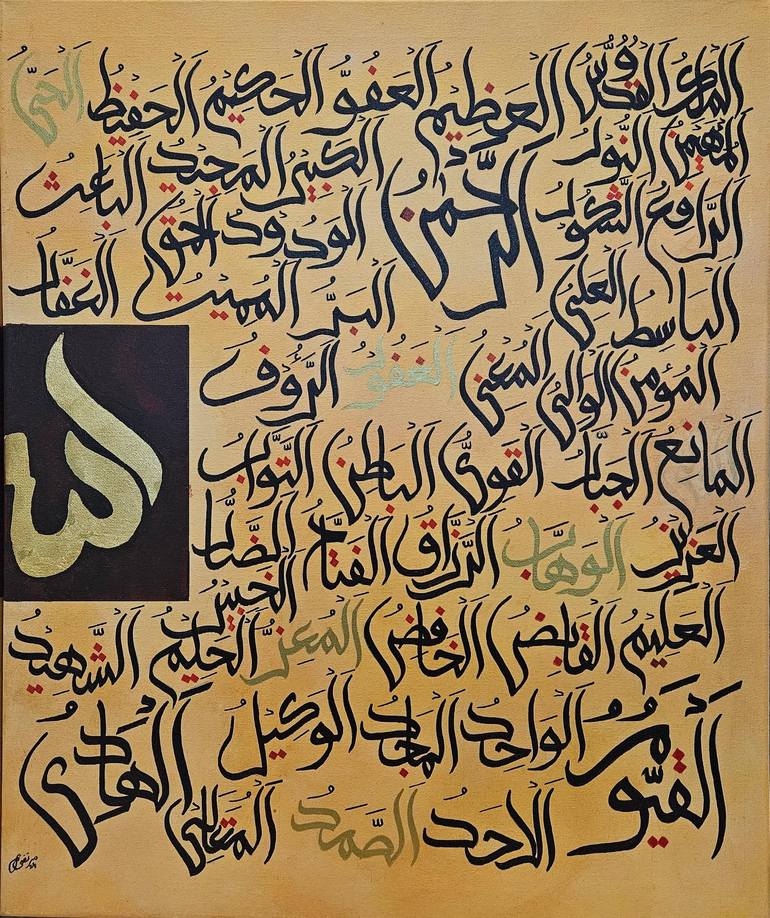 المَلِكُ القُدُّوسُ العَظِيمُ العَفُوُّ الحَكِيمُ الحَفِيظُ الحَيُّ
المُهَيْمِنُ النُّورُ الرَّحْمٰنُ الكَبِيرُ المَجِيدُ البَاعِثُ
الرَّافِعُ الشَّكُورُ الوَدُودُ الحَقُّ
البَاسِطُ العَلِيُّ البَرُّ المُمِيتُ الغَفَّارُ
المُؤْمِنُ الوَالِيُ المُغْنِيُ الغَفُورُ الرَّؤُوفُ
المَانِعُ الجَبَّارُ القَوِيُّ البَاطِنُ التَّوَّابُ
العَزِيزُ الوَهَّابُ الرَّزَّاقُ الفَتَّاحُ الضَّارُّ
الله
العَلِيمُ القَابِضُ الخَافِضُ المُعِزُّ الحَلِيمُ الخَبِيرُ الشَّهِيدُ
القَيُّومُ الوَاحِدُ المَاجِدُ الوَكِيلُ الهَادِيُ
الاَحَدُ الصَّمَدُ المُتَعَالِيُ